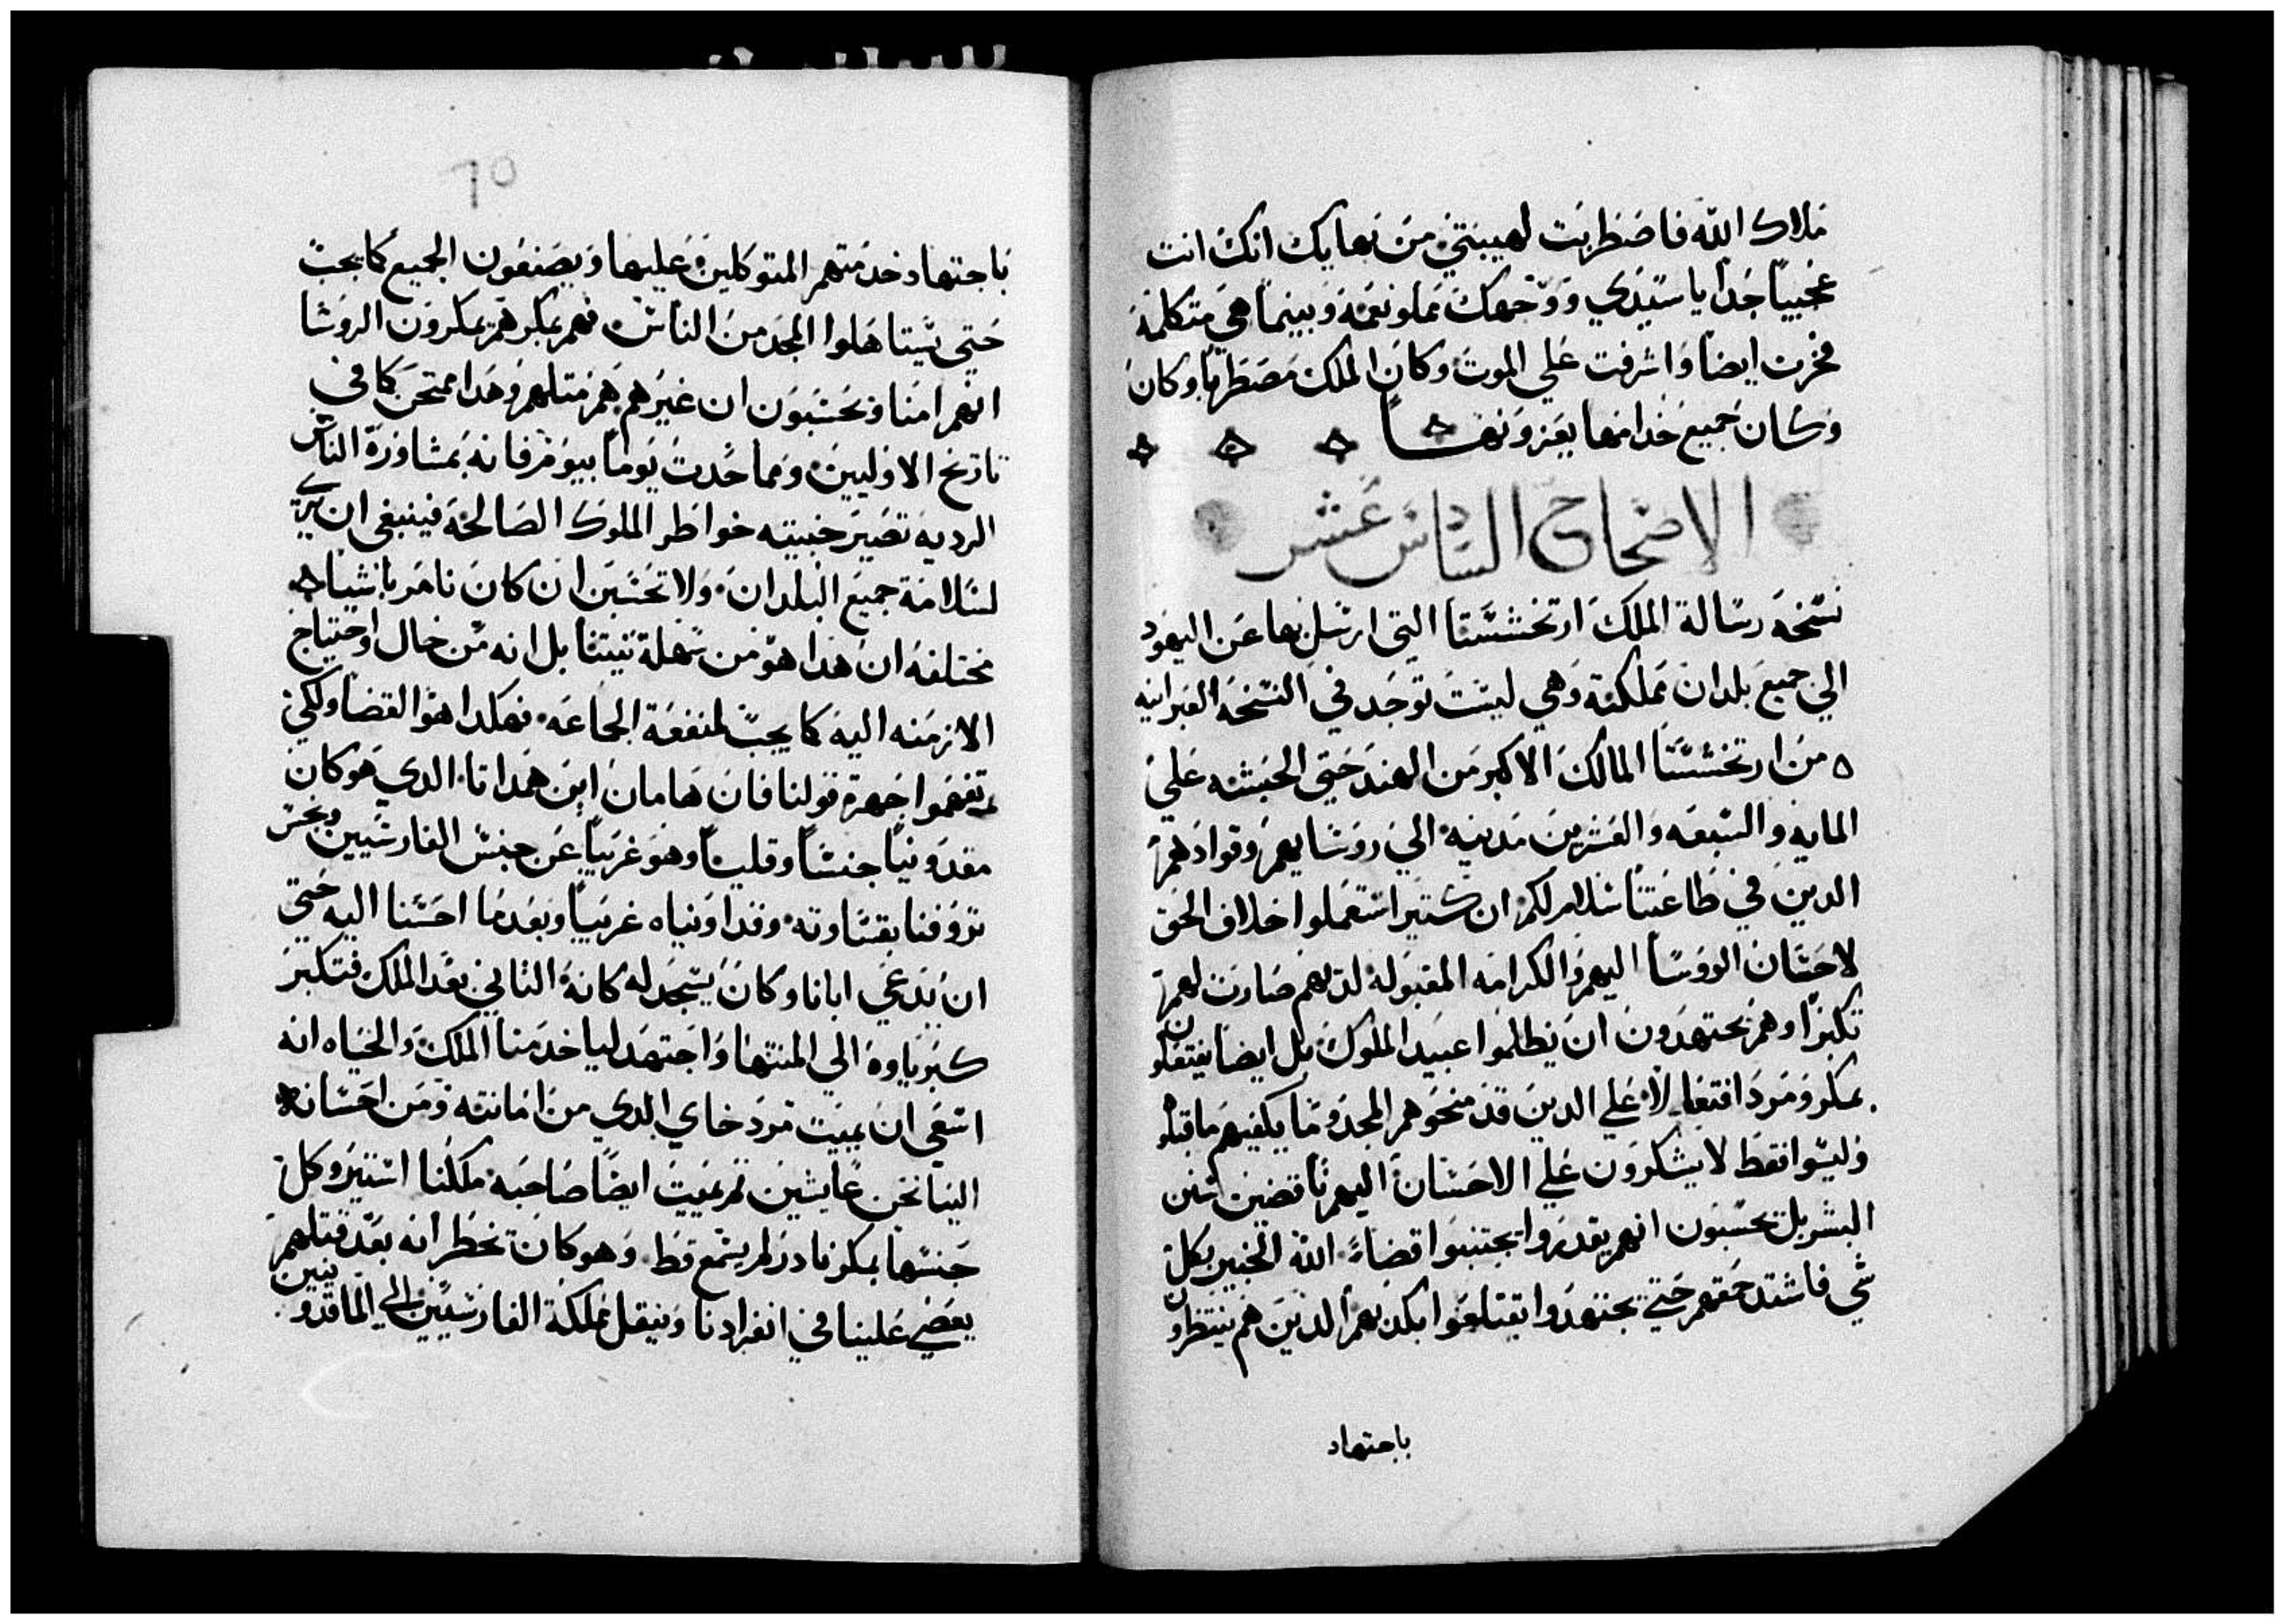 ملاك الله فاضطربت لهيبتي من بهايك انك انت
عجيباً جداً يا سيدي ووجهك مملو نعمة وبينما هي متكلمة
فخرت ايضاً واشرفت علي الموت وكان الملك مضطرباً وكان
وكان جميع خدامها يعزونهـــا
الاضحاح السادس عشر
نسخة رسالة الملك ارتخششتا التي ارسل بها عن اليهود
الي جميع بلدان مملكته وهي ليست توجد في النسخة العبرانيه
من ارتخششتا المالك الاكبر من الهند حتي الحبشه علي
المايه والسبعه والعشرين مدينه الي روسايهم وقوادهم
الدين في طاعتنا سلام لكم ان كتيرا استعملوا خلاف الحق
لاحسان الروسا اليهم والكرامه المقبوله لديهم صارت لهم
تكبراً وهم يجتهدون ان يظلموا عبيد الملوك بل ايضاً يفتعلون
بمكر ومرد افتعالا علي الدين قد منحوهم المجد وما يكفيهم ما قبلوه
وليسوا فقط لا يشكرون علي الاحسان اليهم ناقضين سنن
البشر بل يحسبون انهم يقدروا يجتنبوا قضاء الله الخبير بكل
شي فاشتد حمقهم حتي يجتهدوا يقتلعوا بكدبهم الدين هم ينتظرون
باجتهاد
٦٥
باجتهاد خدمتهم المتوكلين عليها ويصنعون الجميع كما يجب
حتي يستاهلوا المجد من الناس فهم بمكرهم يمكرون الروسا
انهم امنا ويحسبون ان غيرهم هم متلهم وهدا ممتحن كما في
تاريخ الاوليين ومما حدت يوماً بيوم فانه بمشاورة الناس
الرديه تصير خبيته خواطر الملوك الصالحة فينبغي ان يرى
لسلامة جميع البلدان ولا تحسبن ان كان نامر باشيا
مختلفه ان هدا هو من سهلة نيتنا بل انه من حال احتياج
الازمنه اليه كما يجب لمنفعة الجماعه فهكدا هو القضا ولكي
تفهموا جهرة قولنا فان هامان ابن همداتا الدي هو كان
مقدونياً جنساً وقلباً وهو غريباً عن جنس الفارسيين ونجس
تروفنا بقساوته وقد اونياه غريباً وبعدما احسنا اليه حتي
ان يدعي ابانا وكان يسجد له كانه التاني بعد الملك فتكبر
كبرياوه الي المنتها واجتهد لياخد منا الملك والحياه انه
اسعي ان يميت مردخاي الدي من امانته ومن احسانه
الينا نحن عايشين تم يميت ايضاً صاحبة ملكنا استير وكل
جنسها بمكر نادر لم يسمع قط وهو كان يخطر انه بعد قتلهم
يعصي علينا في انفرادنا وينقل مملكة الفارسيين الي الماقدونيين